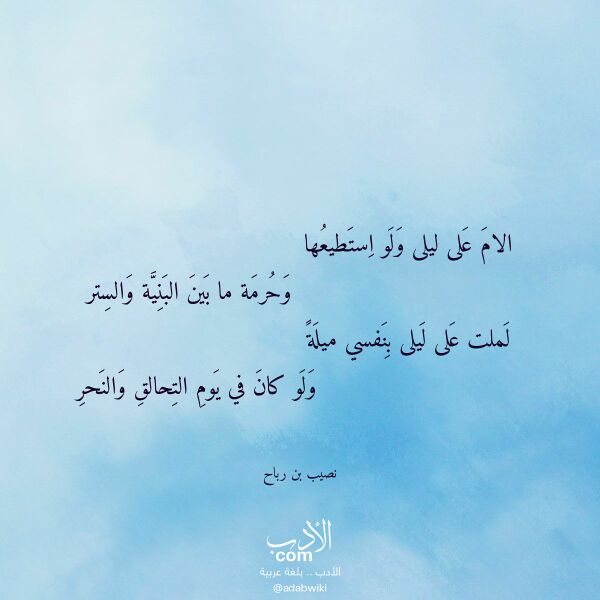 الامَ عَلى ليلى وَلَو اِستَطيعُها
وَحُرمَة ما بَينَ البَنِيَّة وَالسِتر
لَملت عَلى لَيلى بِنَفسي ميلَةً
وَلَو كانَ في يَومِ التِحالقِ وَالنَحرِ
نصيب بن رباح
الأدب
com
الأدب .. بلغة عربية
@adabwiki